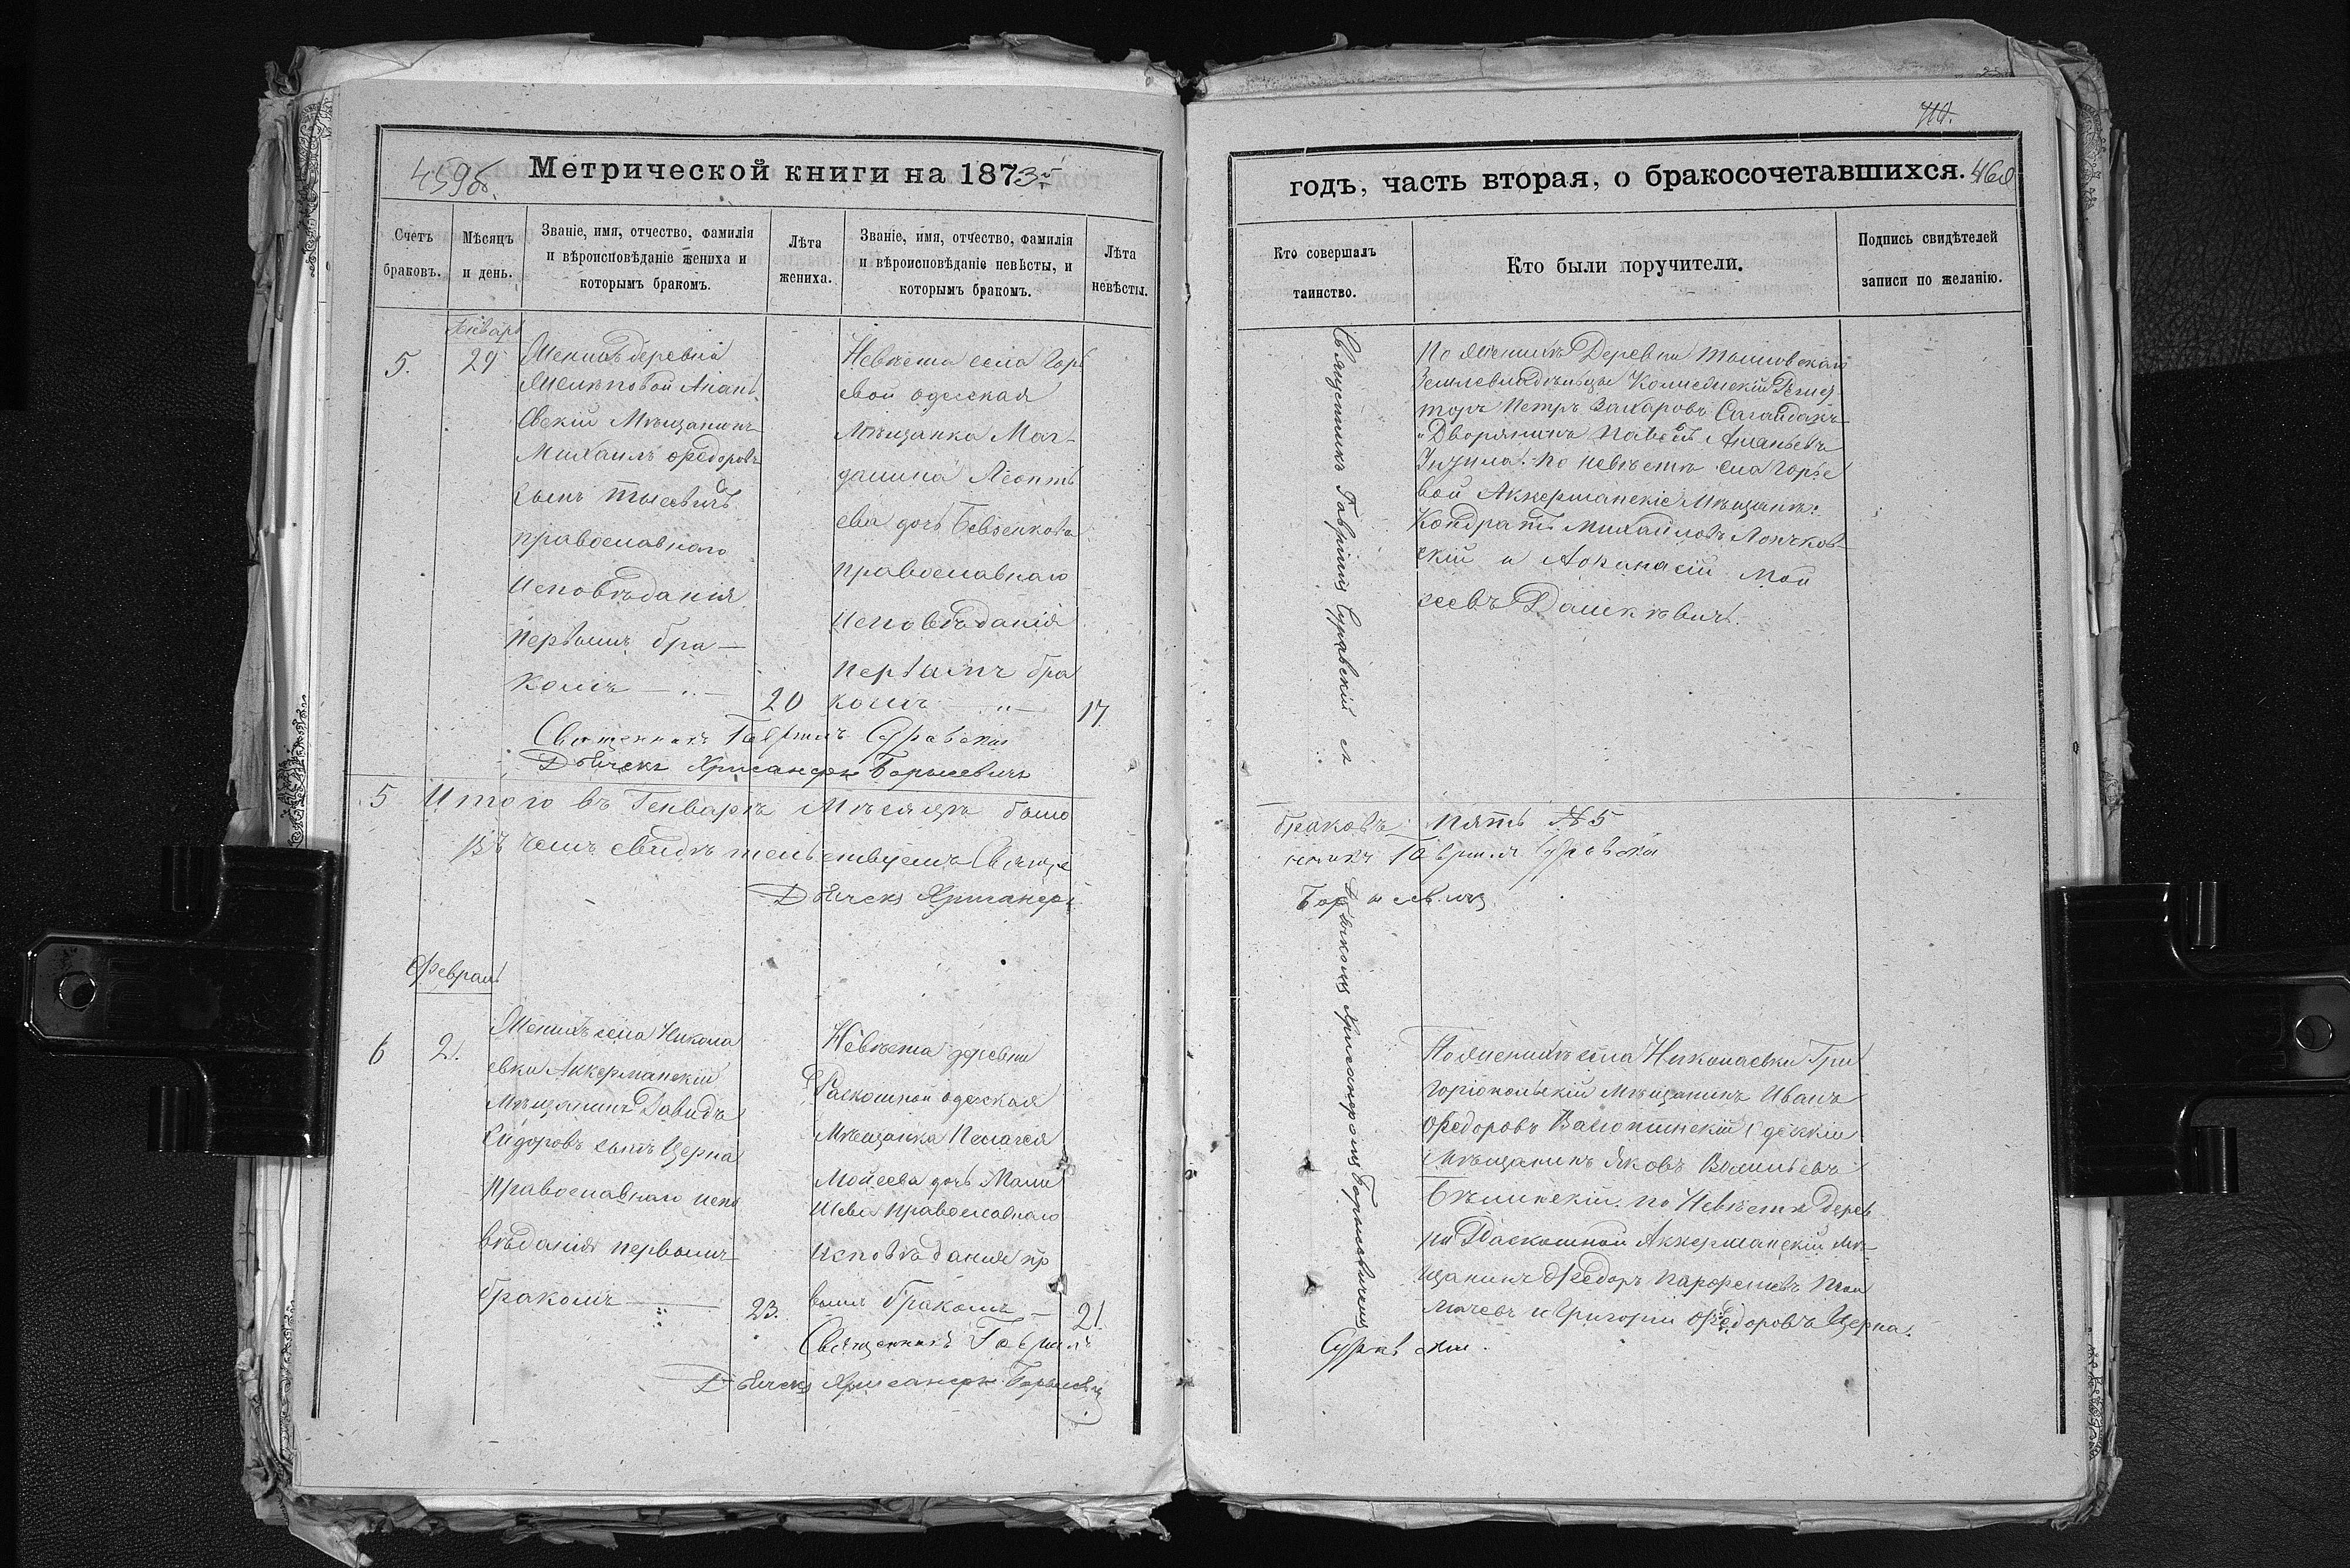 459б.
Метрической книги на 1873й
Счетъ браковъ.
Мѣсяцъ и день.
Званіе, имя, отчество, фамилія
и вѣроисповѣданіе жениха и
которымъ бракомъ.
Лѣта
жениха.
Званіе, имя, отчество, фамилія
и вѣроисповѣданіе невѣсты, и
которымъ бракомъ.
Лѣта
невѣсты.
Январь
5.
29
Женихъ деревни
Мѣщанинъ
Михаилъ Ѳедоровъ
сынъ
православнаго
исповѣданія
первымъ бра-
комъ
20
Невѣста села Горь
евой одесская
Мѣщанка Маг-
далина Леонть
ева дочь Бевзенкова
православнаго
исповѣданія
первымъ бра
комъ
17
Священникъ Гавріилъ Суравскій
Дьячекъ Хрисанфъ
5 Итого въ Генварѣ Мѣсяцѣ было
Въ чемъ свидѣтельствуемъ Священ
Дьячекъ Хрисанфъ
Февраль
6
2.
Женихъ села Никола
евки Аккерманскій
Мѣщанинъ Давидъ
Сидоровъ сынъ Церна
православнаго испо
вѣданія первымъ
бракомъ
23.
Невѣста деревни
Раскошной одесская
Мѣщанка Пелагея
Моисеева дочь
православнаго
исповѣданія пр
вымъ бракомъ
21.
Священникъ Гавріилъ
Дьячекъ Хрисанфъ
годъ, часть вторая, о бракосочетавшихся.
460
Кто совершалъ
таинство.
Кто были поручители.
Подпись свидѣтелей
записи по желанію.
Священникъ Гавріилъ Суравскій съ
Дьячкомъ Хрисанфомъ
По женихѣ Деревни
Землевладѣльцы Колиежскій Регис
торъ Петръ Захаровъ Сагайдакъ
и Дворянинъ Павелъ Ананьевъ
По невѣстѣ села Горье
вой Аккерманскіе Мѣщане:
Кондратъ Михайловъ
скій и Афанасій Мои
сеевъ Дашкевичъ.
браковъ пять № 5
никъ Гавріилъ Суравскій
По женихѣ села Николаевки Гри
горіопольскій Мѣщанинъ Иванъ
Ѳедоровъ Одесскій
Мѣщанинъ Яковъ
по Невѣстѣ дерев
ни Раскошной Аккерманскій Мѣ-
щанинъ Ѳедоръ
и Григорій Ѳедоровъ Церна.
Суравскій.